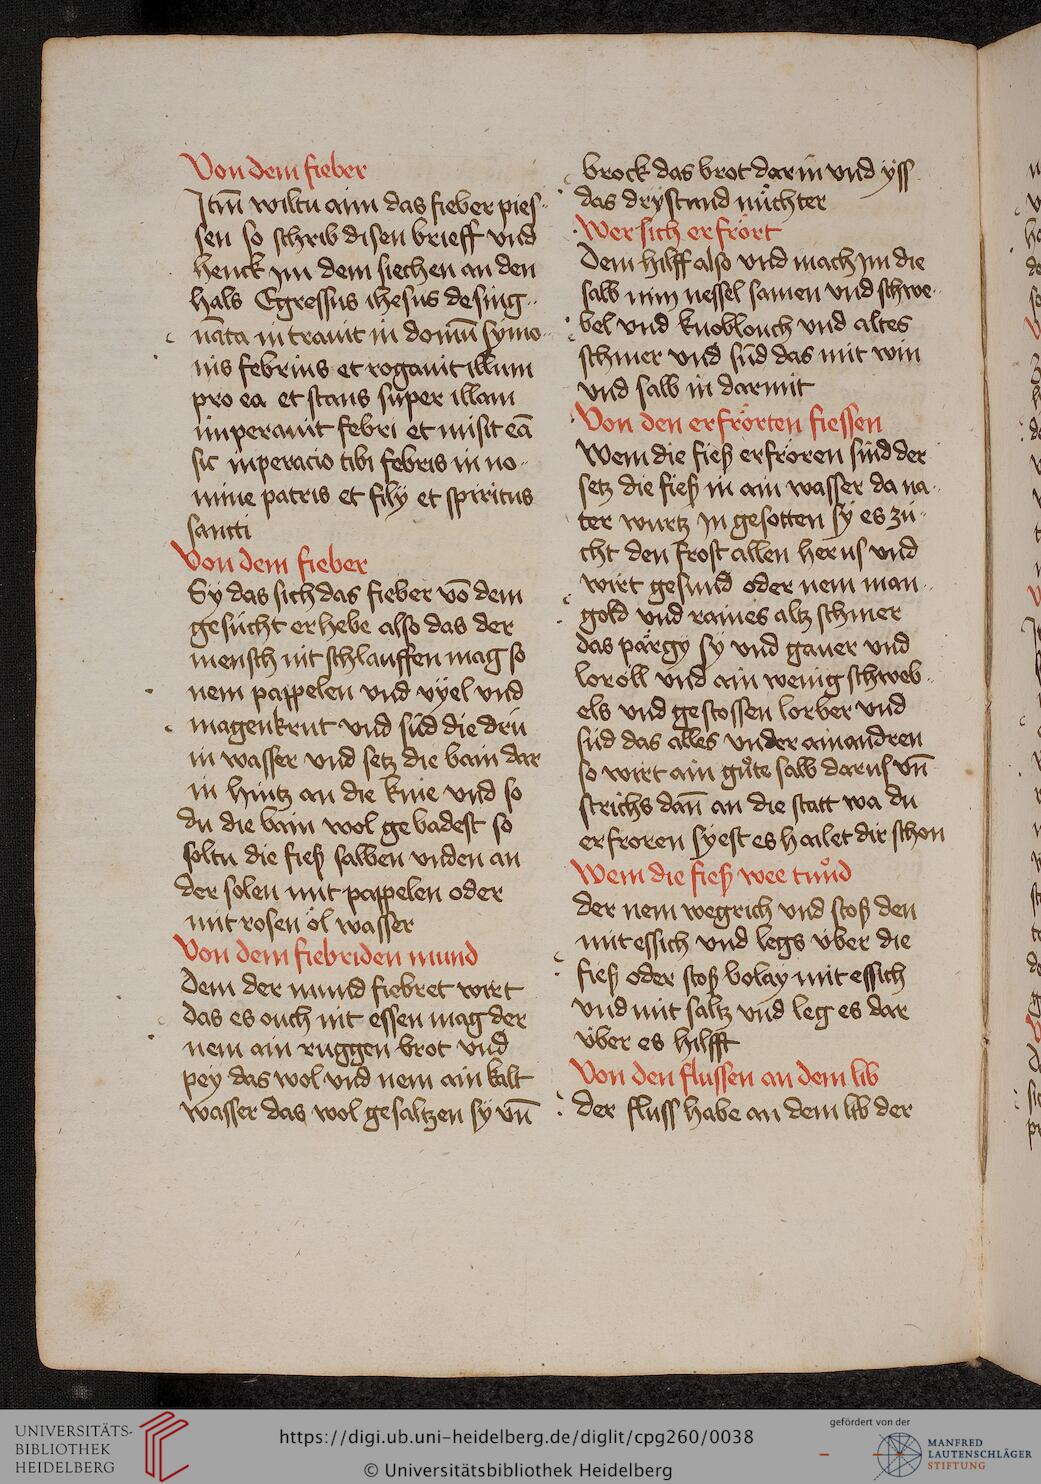 Von dem fieber
Itm̅ wiltu aim das fieber pies-
sen so schrib disen brieff vnd
henck jm dem siechen an den
hals Egressus ihesus de sing-
nāta in trauit in domū symo-
nis febrius et rogauit illum
pro ea et stans super illam
imperauit febri et misit eā
sic inperacio tibi febris in no-
mine patris et filÿ et spiritus
santti
Von dem fieber
Sy das sich das fieber vō dem
gesücht erhebe also das der
mensch nit schlauffen mag so
nem pappelen vnd vÿel vnd
magenkrut vnd süd die drü
in wasser vnd setz die bain dar
in hintz an die knie vnd so
du die bain wol ge badest so
soltu die fieß salben vnden an
der solen mit pappelen oder
mit rosen öl wasser
Von dem fiebriden mund
Dem der mund fiebret wirt
das es ouch nit essen mag der
nem ain ruggen brot vnd
pey das wol vnd nem ain kalt
wasser das wol gesaltzen sÿ vn̄
brock das brot dar in vnd ÿss
das drÿstund nuͦchter
Wer sich erfrört
Dem hilff also vnd mach jm die
salb nim nessel samen vnd schwe-
bel vnd knoblouch vnd altes
schmer vnd süd das mit win
vnd salb in darmit
Von den erfrörten fiessen
Wem die fieß erfroren sind der
setz die fieß in ain wasser da na-
ter wurtz jn gesotten sÿ es zü-
cht den frost allen her us vnd
wirt gesund oder nem man-
gold vnd raines altz schmer
das pärgÿ sÿ vnd gauer vnd
loröll vnd ain wenig schweb-
els vnd gestossen lorber vnd
süd das alles vnder ainandren
so wirt ain guͦte salb darus vn̄
strichs dan̄ an die statt wa du
erfroren sÿest es hailet dir schon
Wem die fieß wee tuͦnd
der nem wegrich vnd stoß den
mit essich vnd legs über die
fieß oder stoß bolaÿ mit essich
vnd mit saltz vnd leg es dar
über es hilfft
Von den flussen an dem lib
der fluss habe an dem lib der
UNIVERSITÄTS-
BIBLIOTHEK
HEIDELBERG
https://digi.ub.uni-heidelberg.de/diglit/cpg260/0038
© Universitätsbibliothek Heidelberg
gefördert von der
MANFRED
LAUTENSCHLÄGER
STIFTUNG